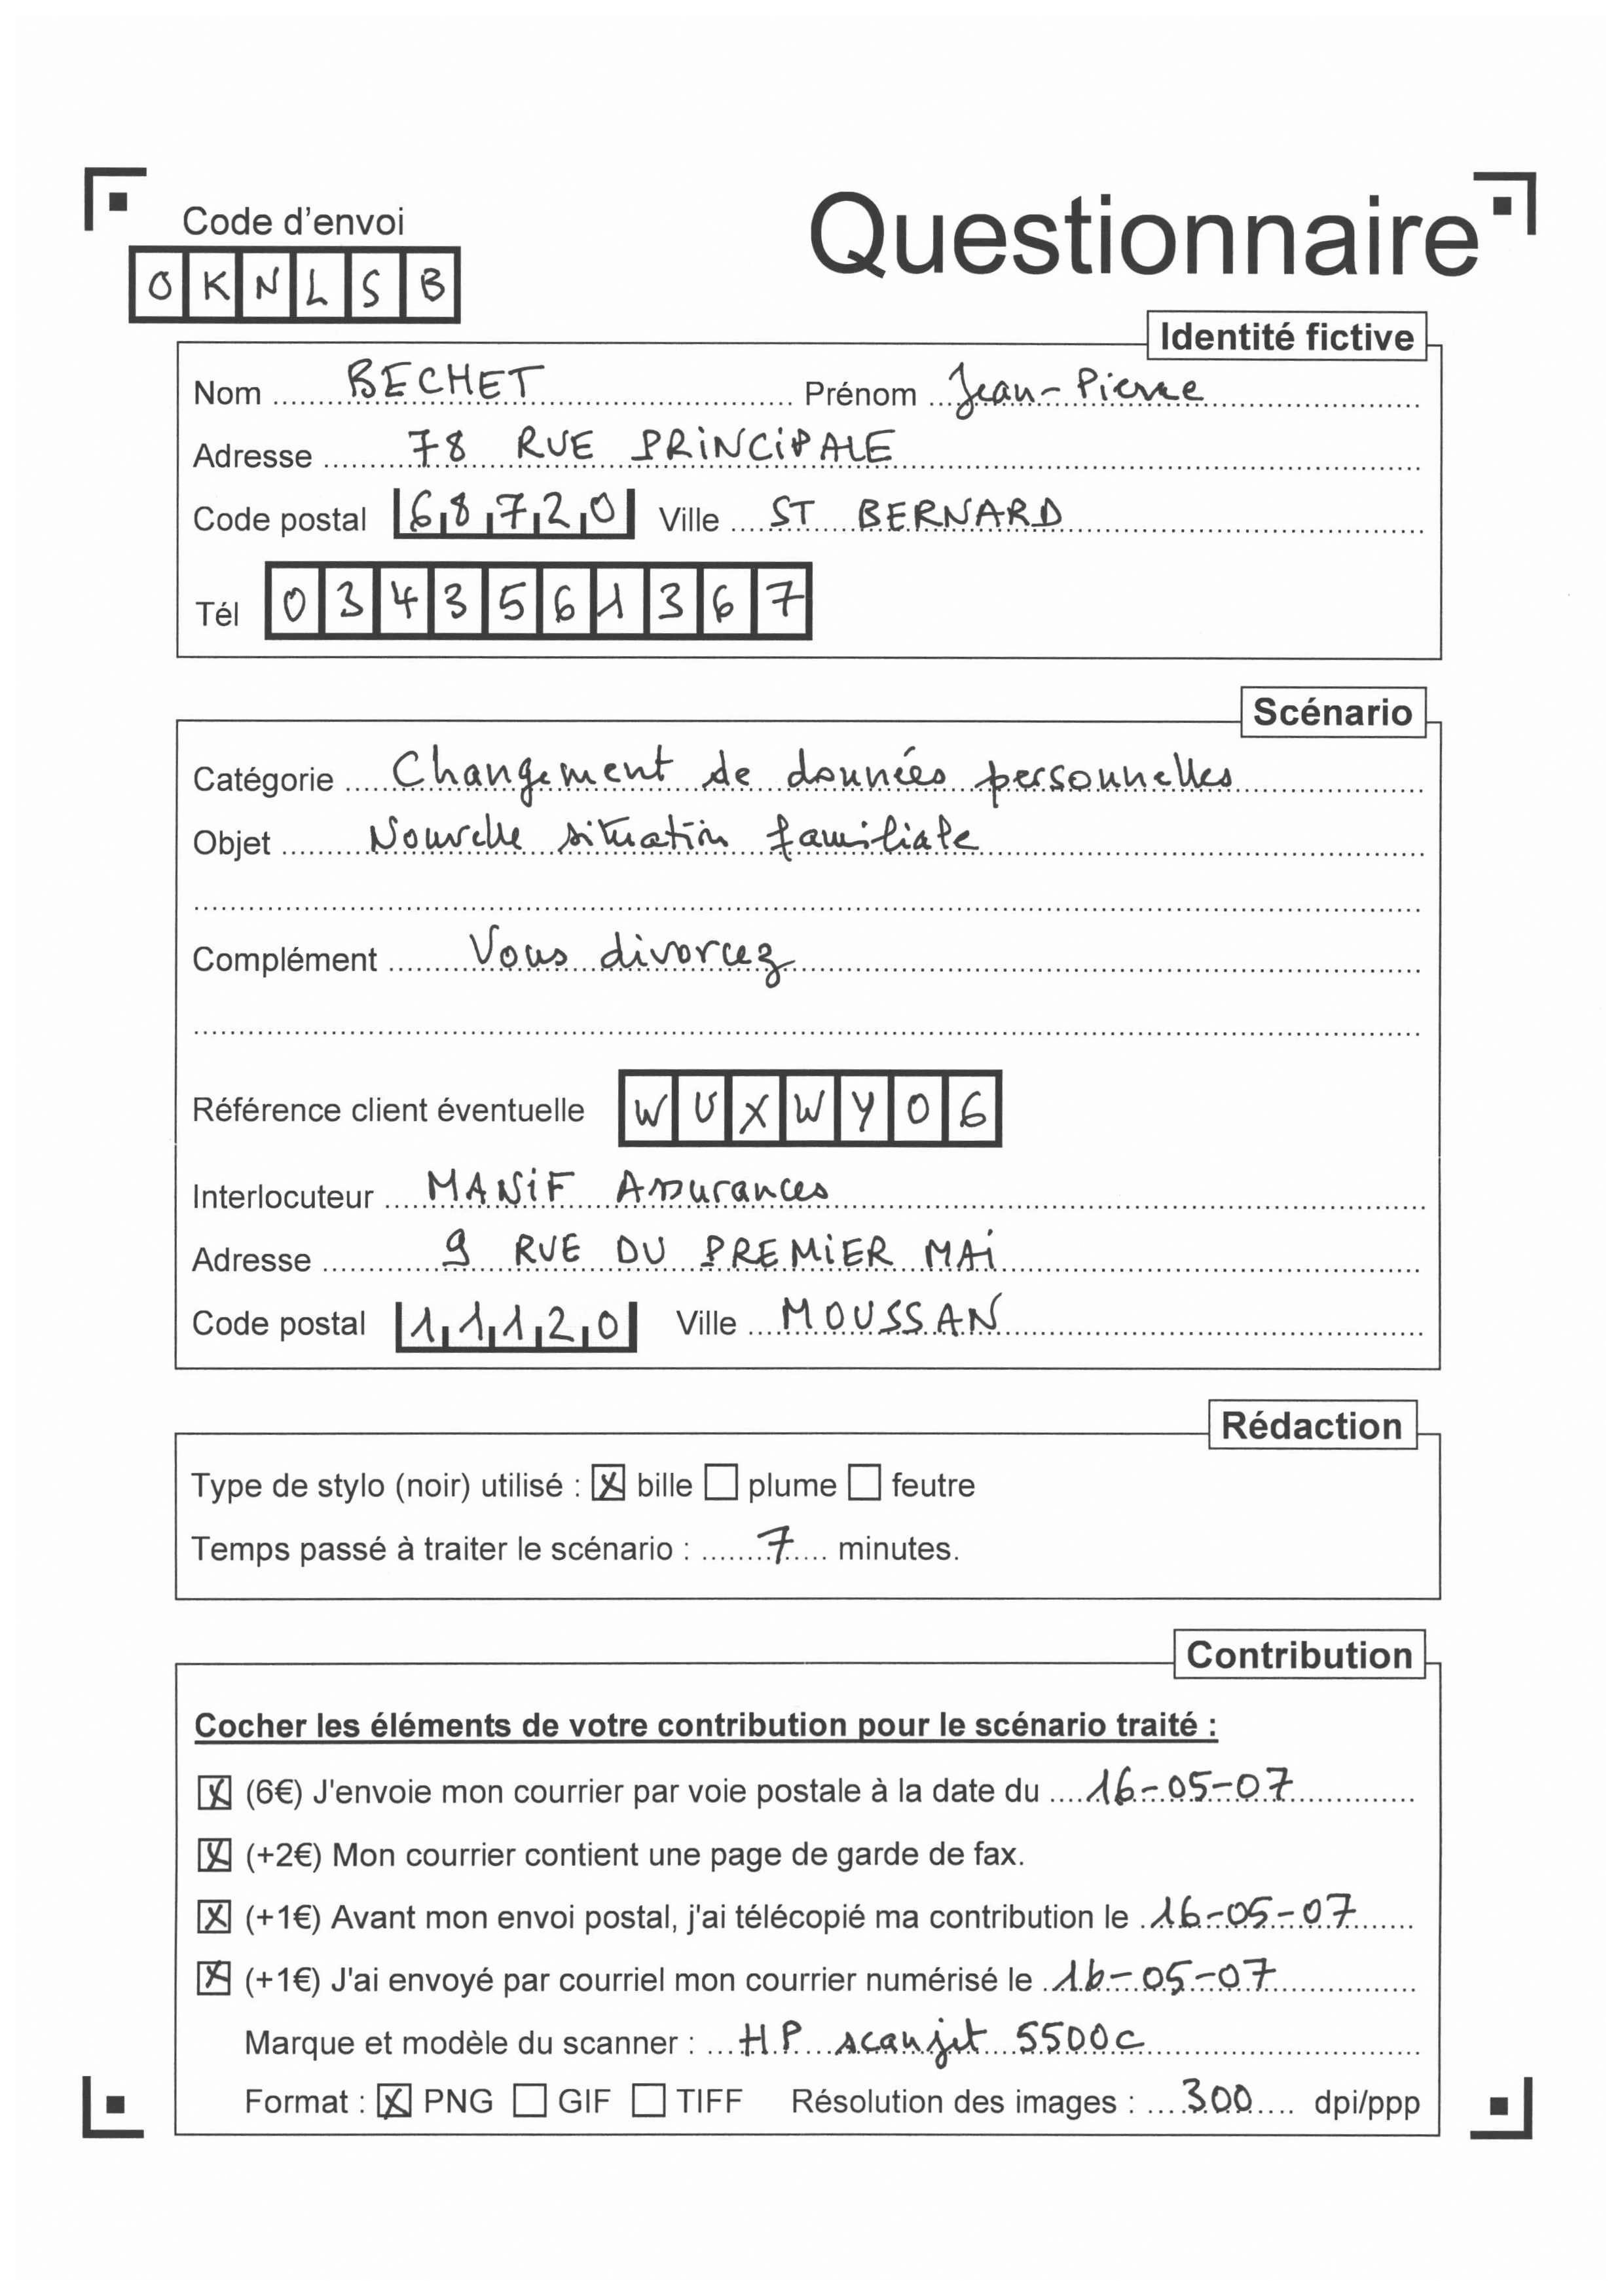 Code d'envoi
Questionnaire
OKNLSB
Identité fictive
Nom BECHET Prénom Jean-Pierre
Adresse 78 RUE PRINCIPALE
Code postal 68720 Ville ST BERNARD
Tél 0343561367
Scénario
Catégorie Changement de données personnelles
Objet Nouvelle situation familiale
Complément Vous divorcez
Référence client éventuelle WUXWY06
Interlocuteur MANIF Assurances
Adresse 9 RUE DU PREMIER MAI
Code postal 11120 Ville MOUSSAN
Rédaction
Type de stylo (noir) utilisé : ☒ bille ☐ plume ☐ feutre
Temps passé à traiter le scénario : 7 minutes.
Contribution
Cocher les éléments de votre contribution pour le scénario traité :
☒ (6€) J'envoie mon courrier par voie postale à la date du 16-05-07
☒ (+2€) Mon courrier contient une page de garde de fax.
☒ (+1€) Avant mon envoi postal, j'ai télécopié ma contribution le 16-05-07
☒ (+1€) J'ai envoyé par courriel mon courrier numérisé le 16-05-07
Marque et modèle du scanner : HP scanjet 5500c
Format : ☒ PNG ☐ GIF ☐ TIFF Résolution des images : 300 dpi/ppp